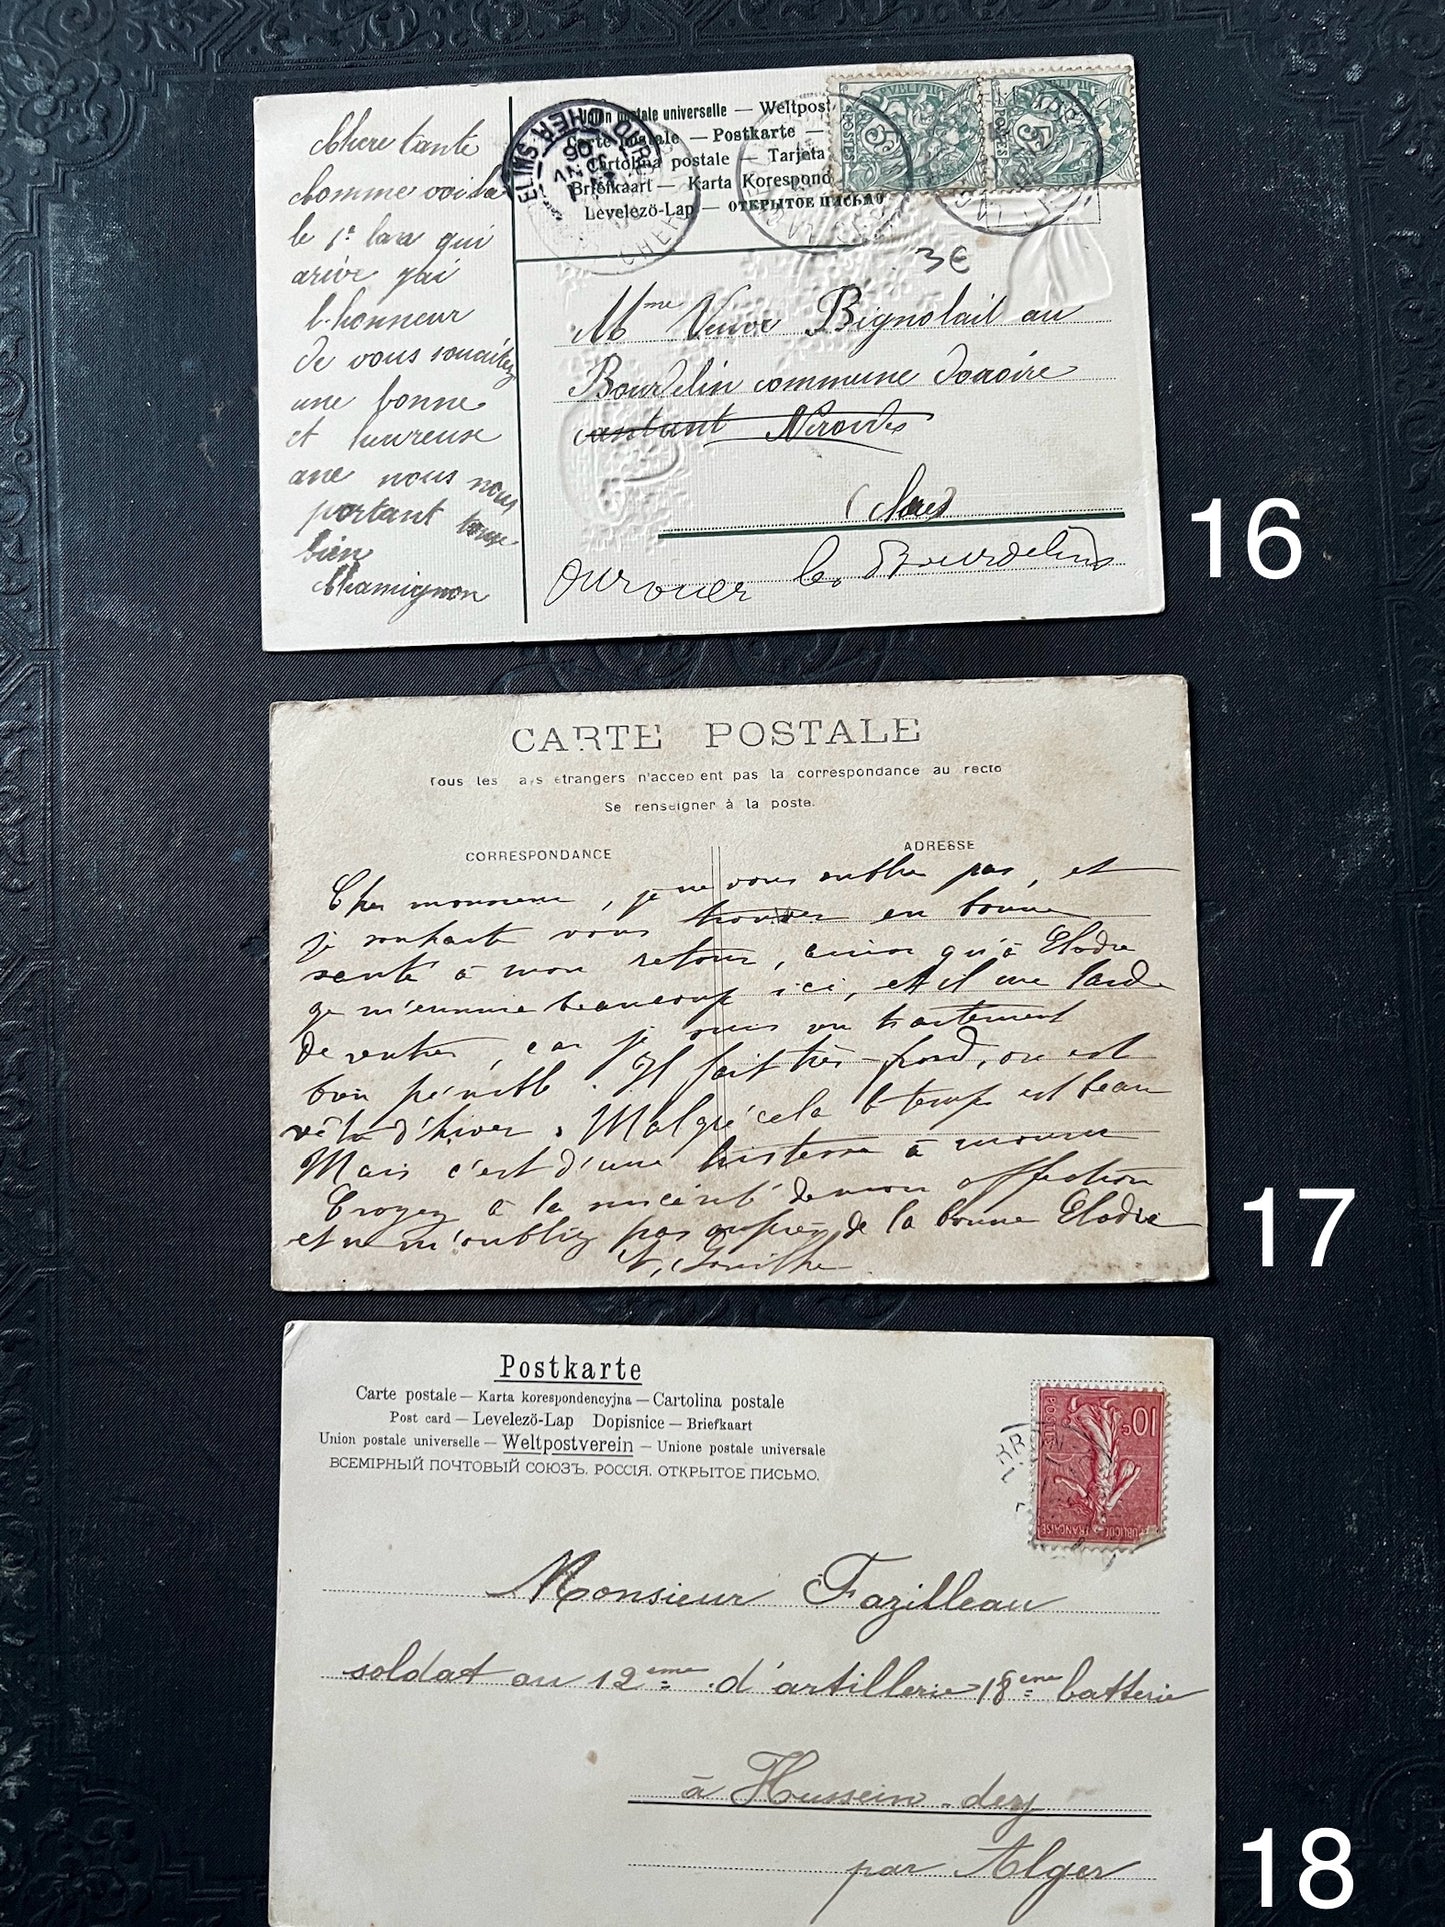 Chere tante
Comme voila
le 1er lan qui
arive j'ai
l'honneur
de vous souaitez
une bonne
et heureuse
ane nous nous
portant tous
bien
Chamignon
Union postale universelle — Weltpost
Carte postale — Postkarte —
Cartolina postale — Tarjeta
Briefkaart — Karta Korespond
Levelezö-Lap — ОТКРЫТОЕ ПИСЬМО
POSTES
5
5
CHER
3€
Mme Veuve Bignolait au
Bourdelin commune
cantant Nerondes
Cher
Ourouer les Bourdelins
16
CARTE POSTALE
Tous les ays étrangers n'accep ent pas la correspondance au recto
Se renseigner à la poste.
CORRESPONDANCE
ADRESSE
Cher monsieur, je ne vous oublie pas, et
je souhaite vous trouver en bonne
santé à mon retour, ainsi qu'à Elodie
je m'ennuie beaucoup ici, et il me tarde
de rentrer, car je suis un traitement
bien pénible. Il fait très froid, on est
vêtu d'hiver. Malgré cela le temps est beau
Mais c'est d'une tristesse à mourir
Croyez à la sincérité de mon affection
et ne m'oubliez pas auprès de la bonne Elodie
17
Postkarte
Carte postale — Karta korespondencyjna — Cartolina postale
Post card — Levelező-Lap Dopisnice — Briefkaart
Union postale universelle — Weltpostverein — Unione postale universale
ВСЕМІРНЫЙ ПОЧТОВЫЙ СОЮЗЪ. РОССІЯ. ОТКРЫТОЕ ПИСЬМО.
10c
POSTES
REPUBLIQUE FRANÇAISE
Monsieur Fazilleau
soldat au 12ème d'artillerie 18ème batterie
à Hussein-dey
par Alger
18